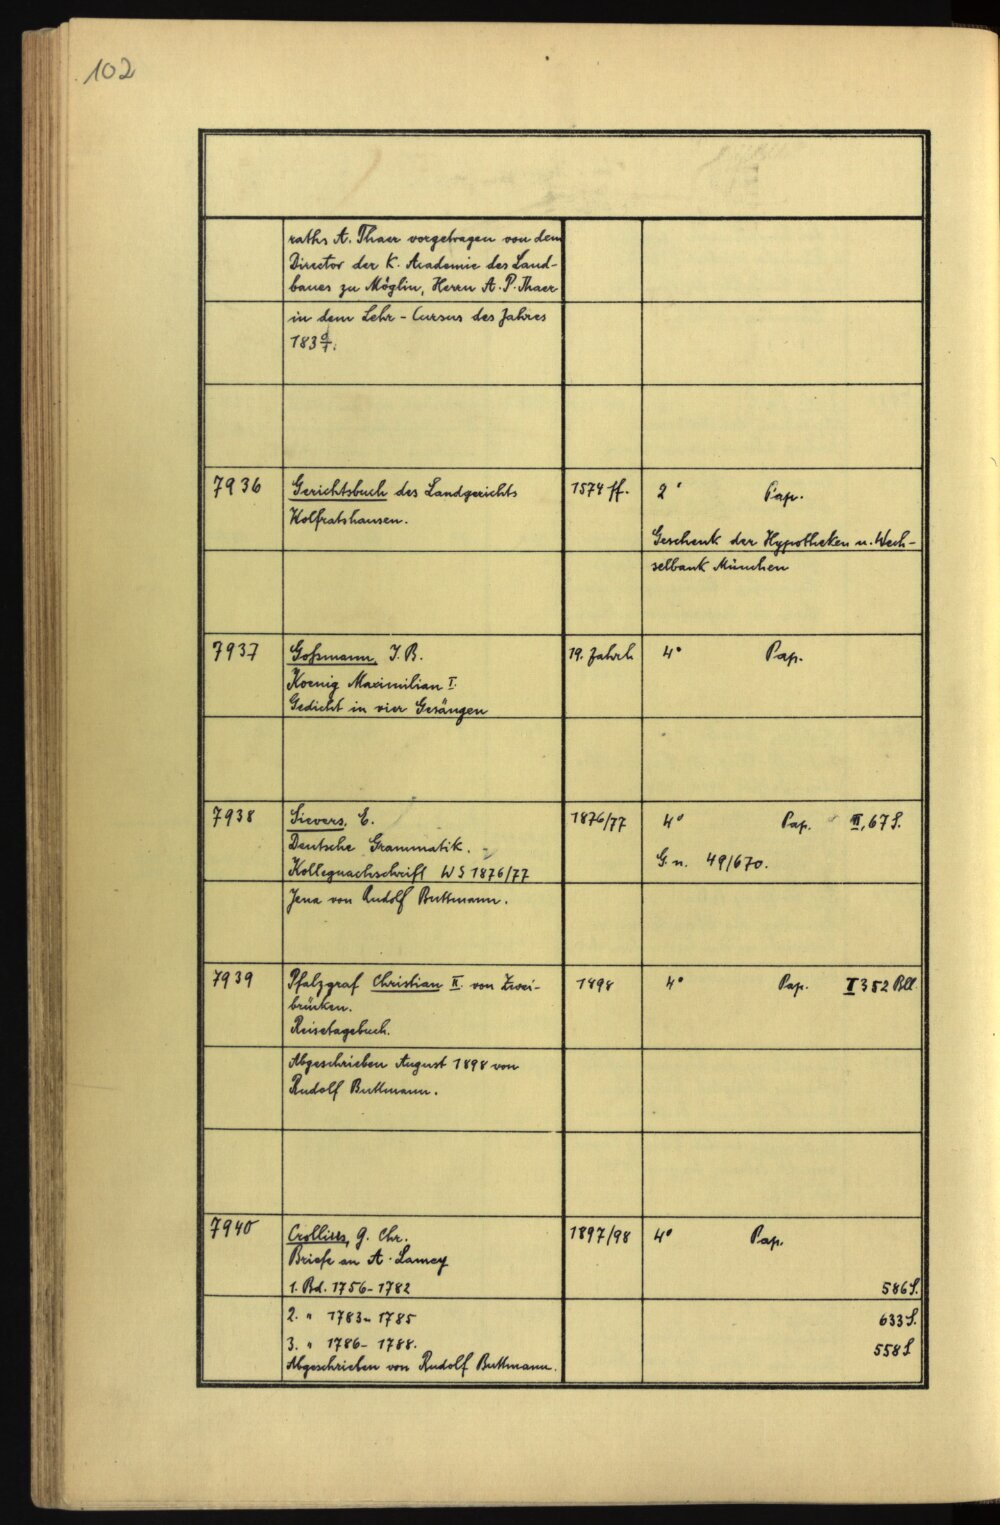 102
raths A. Thaer vorgetragen von dem
Director der K. Academie des Land-
baues zu Möglin, Herrn A. P. Thaer
in dem Lehr-Cursus des Jahres
183
7936 Gerichtsbuch des Landgerichts 1574 ff. 2° Pap.
Wolfratshausen.
Geschenk der Hypotheken u. Wech-
selbank München
7937 Goßmann, J. B. 19. Jahrh 4° Pap.
Koenig Maximilian I.
Gedicht in vier Gesängen
7938 Sievers, E. 1876/77 4° Pap. II, 67 S.
Deutsche Grammatik.
Kollegnachschrift WS 1876/77 G. n. 49/670.
Jena von Rudolf Buttmann.
7939 Pfalzgraf Christian II. von Zwei- 1898 4° Pap. I 352 Bll.
brücken.
Reisetagebuch.
Abgeschrieben August 1898 von
Rudolf Buttmann.
7940 Crollius, G. Chr. 1897/98 4° Pap.
Briefe an A. Lamey
1. Bd. 1756-1782 586 S.
2. " 1783-1785 633 S.
3. " 1786-1788. 558 S
Abgeschrieben von Rudolf Buttmann.